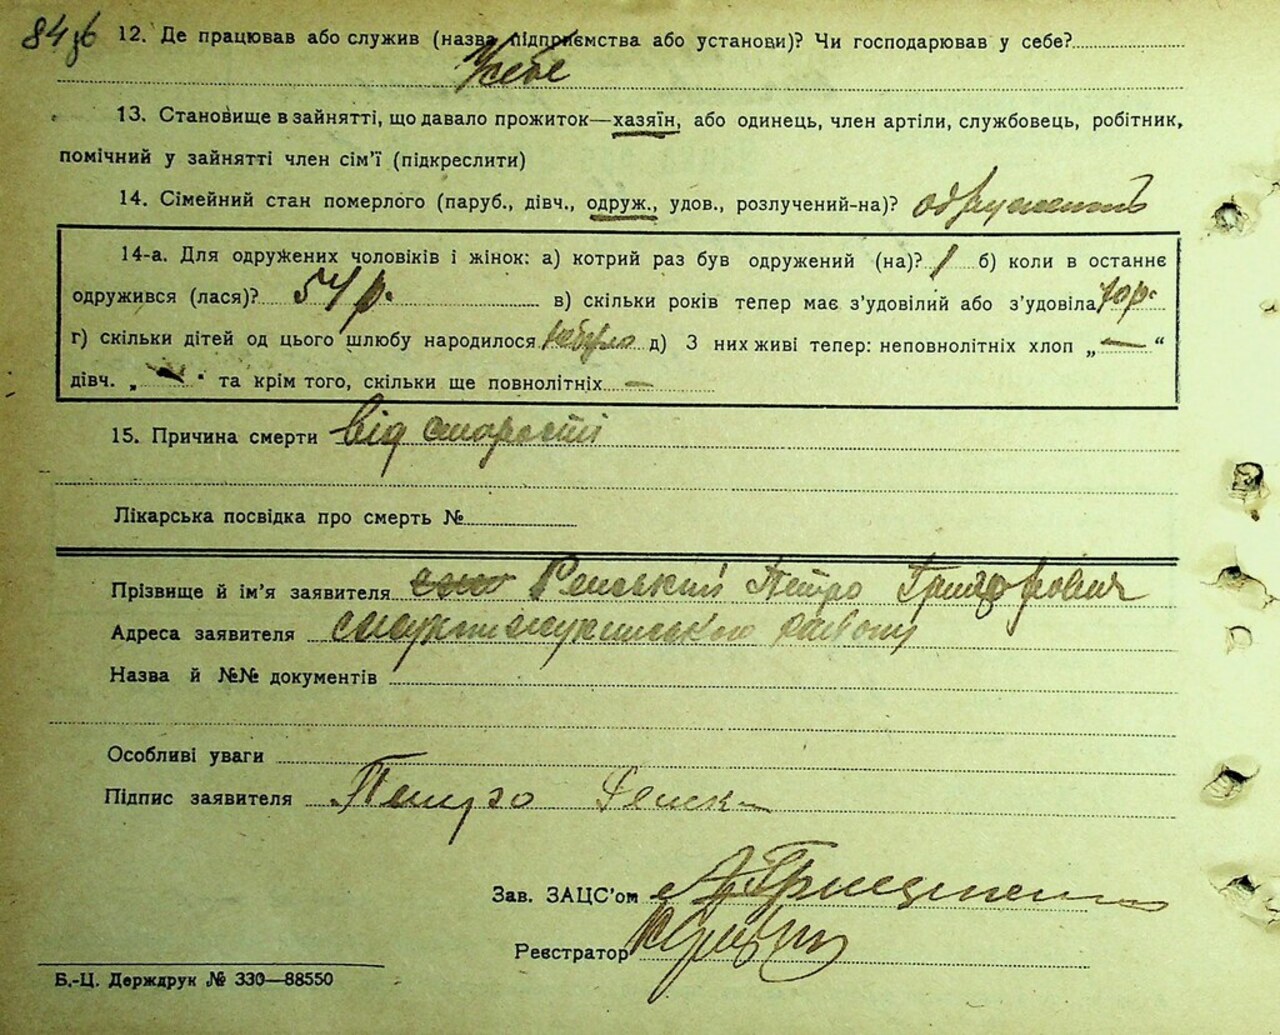 84зв 12. Де працював або служив (назва підприємства або установи)? Чи господарював у себе?
У себе
13. Становище в зайнятті, що давало прожиток—хазяїн, або одинець, член артіли, службовець, робітник,
помічний у зайнятті член сім'ї (підкреслити)
14. Сімейний стан померлого (паруб., дівч., одруж., удов., розлучений-на)?
14-а. Для одружених чоловіків і жінок: а) котрий раз був одружений (на)? 1 б) коли в останнє
одружився (лася)? 54 р. в) скільки років тепер має з'удовілий або з'удовіла 70 р.
г) скільки дітей од цього шлюбу народилося небуло д) З них живі тепер: неповнолітніх хлоп „—“
дівч. „ “ та крім того, скільки ще повнолітніх —
15. Причина смерти від старости
Лікарська посвідка про смерть №
Прізвище й ім'я заявителя Ренський Петро Григорович
Адреса заявителя району
Назва й №№ документів
Особливі уваги
Підпис заявителя Петро Ренск
Зав. ЗАЦС'ом
Реєстратор
Б.-Ц. Держдрук № 330—88550